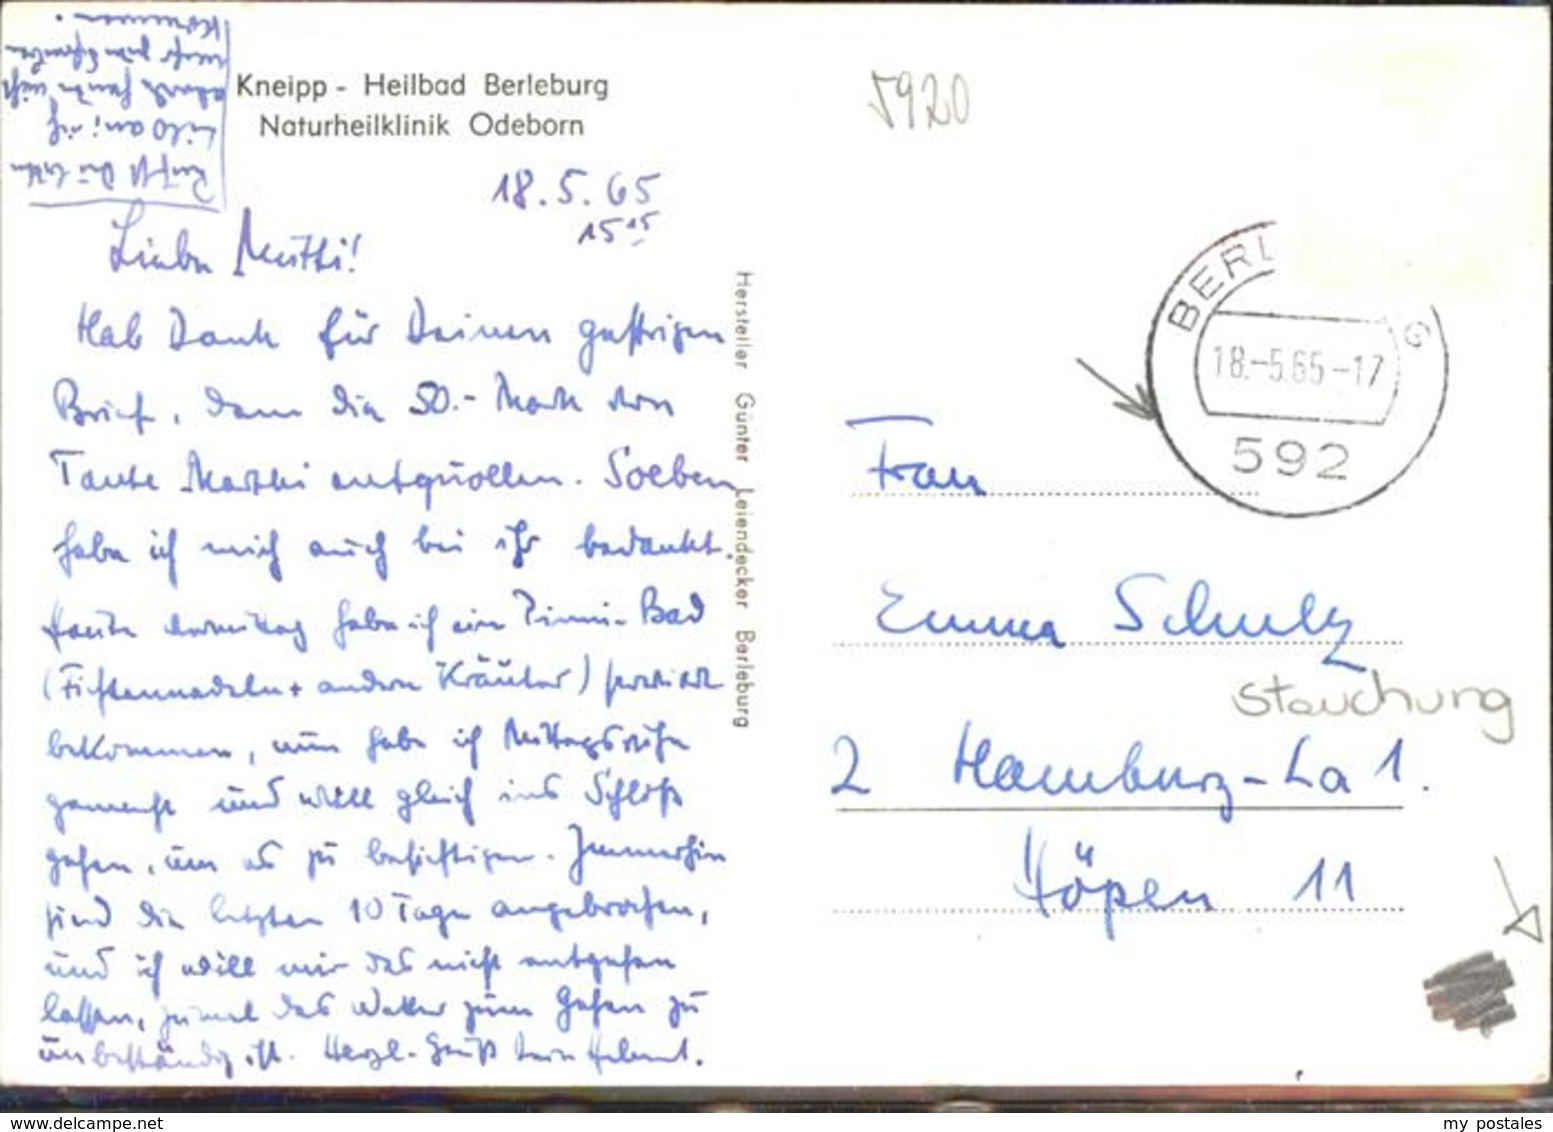 Kneipp - Heilbad Berleburg
Naturheilklinik Odeborn
18.5.65
15 15
Rufst Du bitte
Lilo an; ich
werde heute nicht
mehr zum Schreiben
kommen.
Liebe Mutti!
Hab Dank für Deinen gestrigen
Brief, dem die 50.- Mark von
Tante Marthi entquollen. Soeben
habe ich mich auch bei ihr bedankt.
Heute vormittag habe ich ein Pinni-Bad
(Fichtennadeln + andere Kräuter) serviert
bekommen, nun habe ich Mittagsruhe
gemacht und will gleich ins Schloß
gehen, um es zu besichtigen. Immerhin
sind die letzten 10 Tage angebrochen,
und ich will mir das nicht entgehen
lassen, zumal das Wetter zum Gehen zu
unbeständig ist. Herzl. Gruß Dein Helmut.
Hersteller Günter Leiendecker Berleburg
5920
BERL G
18.-5.65-17
592
Frau
Emma Schulz
Stauchung
2 Hamburg-La 1.
Höpen 11
www.delcampe.net
my postales